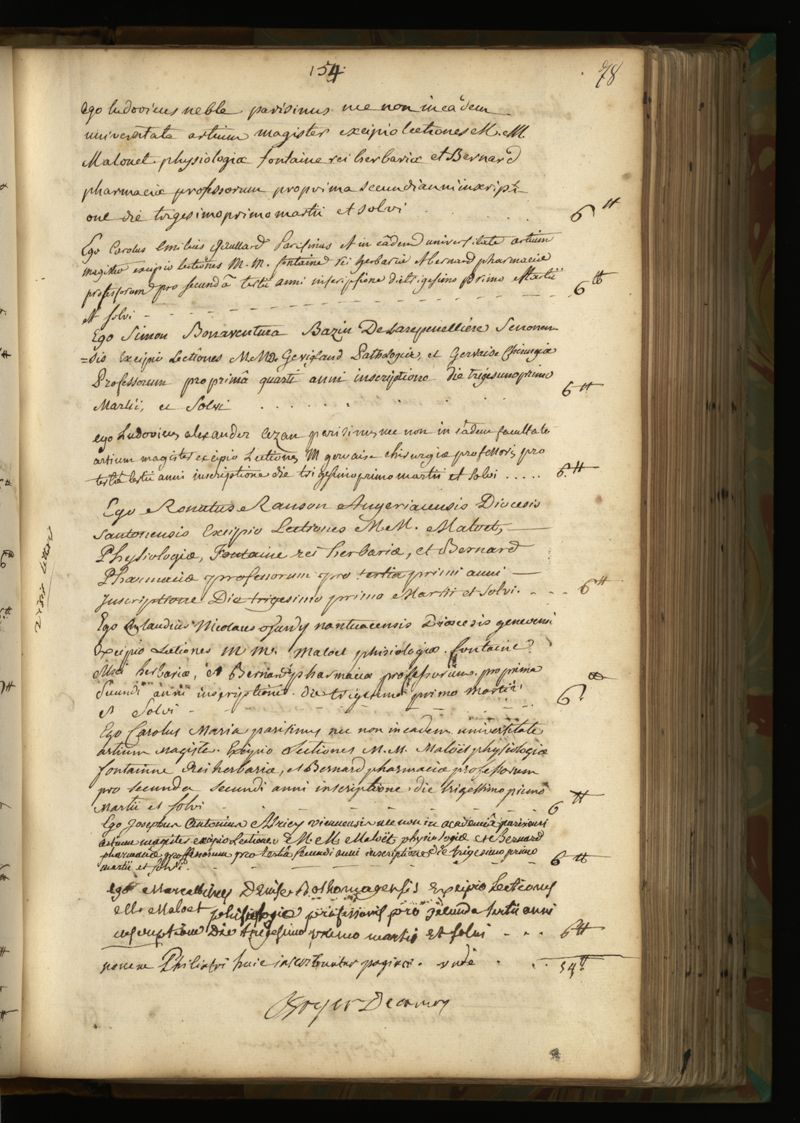 154
78
ego ludovicus neble parisinus nec non in eâdem
universitate artium magister excipio lectiones M. M.
Malouet physiologiæ fontaine rei herbariæ et Bernard
pharmaciæ professorum pro prima secundi anni inscripti
one die trigesimo primo martii et solvi . . . . 6 tt
Ego Carolus Emilius Gaullard Parisinus et in eâdem universitate artium
magister excipio lectiones M. M. fontaine rei herbariæ et bernard pharmaciæ
professorum pro secundâ tertii anni inscriptione die trigesimo primo Martii
et solvi - - - - 6 tt
Ego Simon Bonaventura Bazin De Senonen
=sis Excipio Lectiones M M De Gevigland Pathologiæ, et Gervaise Chirurgiæ
Professorum pro primâ quarti anni inscriptione die trigesimo primo
Martii, et Solvi . . . . . . 6 tt
ego Ludovicus alexander parisinus nec non in eâdem facultate
artium magister excipio Lectiones M gervaise chirurgiæ professoris pro
tertiâ tertii anni inscriptione die trigesimo primo martii et solvi ..... 6. tt
Ego Renatus Ranson Angeriacensis Diocesis
Santonensis Excipio Lectiones M. M. Maloet,
Physiologiæ, Fontaine rei herbariæ, et Bernard
Pharmaciæ professorum pro tertia primi anni
Inscriptione Die trigesimo primo Martii et Solvi. - - - 6 tt
Ego Claudius Nicolaus nantuacensis Diocesis
Excipio Lectiones M M. Maloet phisiologiæ. fontaine
Rei herbariæ, et Bernard pharmaciæ professorum, pro prima
Secundi anni inscriptione. die trigesimo primo martii
et Solvi - - - - 6.
Ego Carolus Maria parisinus nec non in eadem universitate
artium Magister. Excipio Lectiones M. M. Maloët physiologiæ
fontainne Rei herbariæ, et Bernard pharmaciæ professorum
pro secunda secundi anni inscriptione. die trigessimo primo
Martii et solvi - - - - 6 tt
Ego Josephus Antonius viennensis nec non in academiâ parisiensi
artium magister excipio Lectiones M. M. Maloët, physiologiæ et Bernard
pharmaciæ professorum pro tertiâ secundi anni inscriptione Die trigesimo primo
martii et solvi. - - - - 6 tt
ego Marcellinus Denise Rothomagensis Excipio Lectiones
M. Maloet phisiologiæ professoris pro secunda tertii anni
inscriptione Die trigesimo primo martii Et solvi . . . 6 tt
novem Philiatri huic inscribuntur paginæ. undè . . . 54 tt